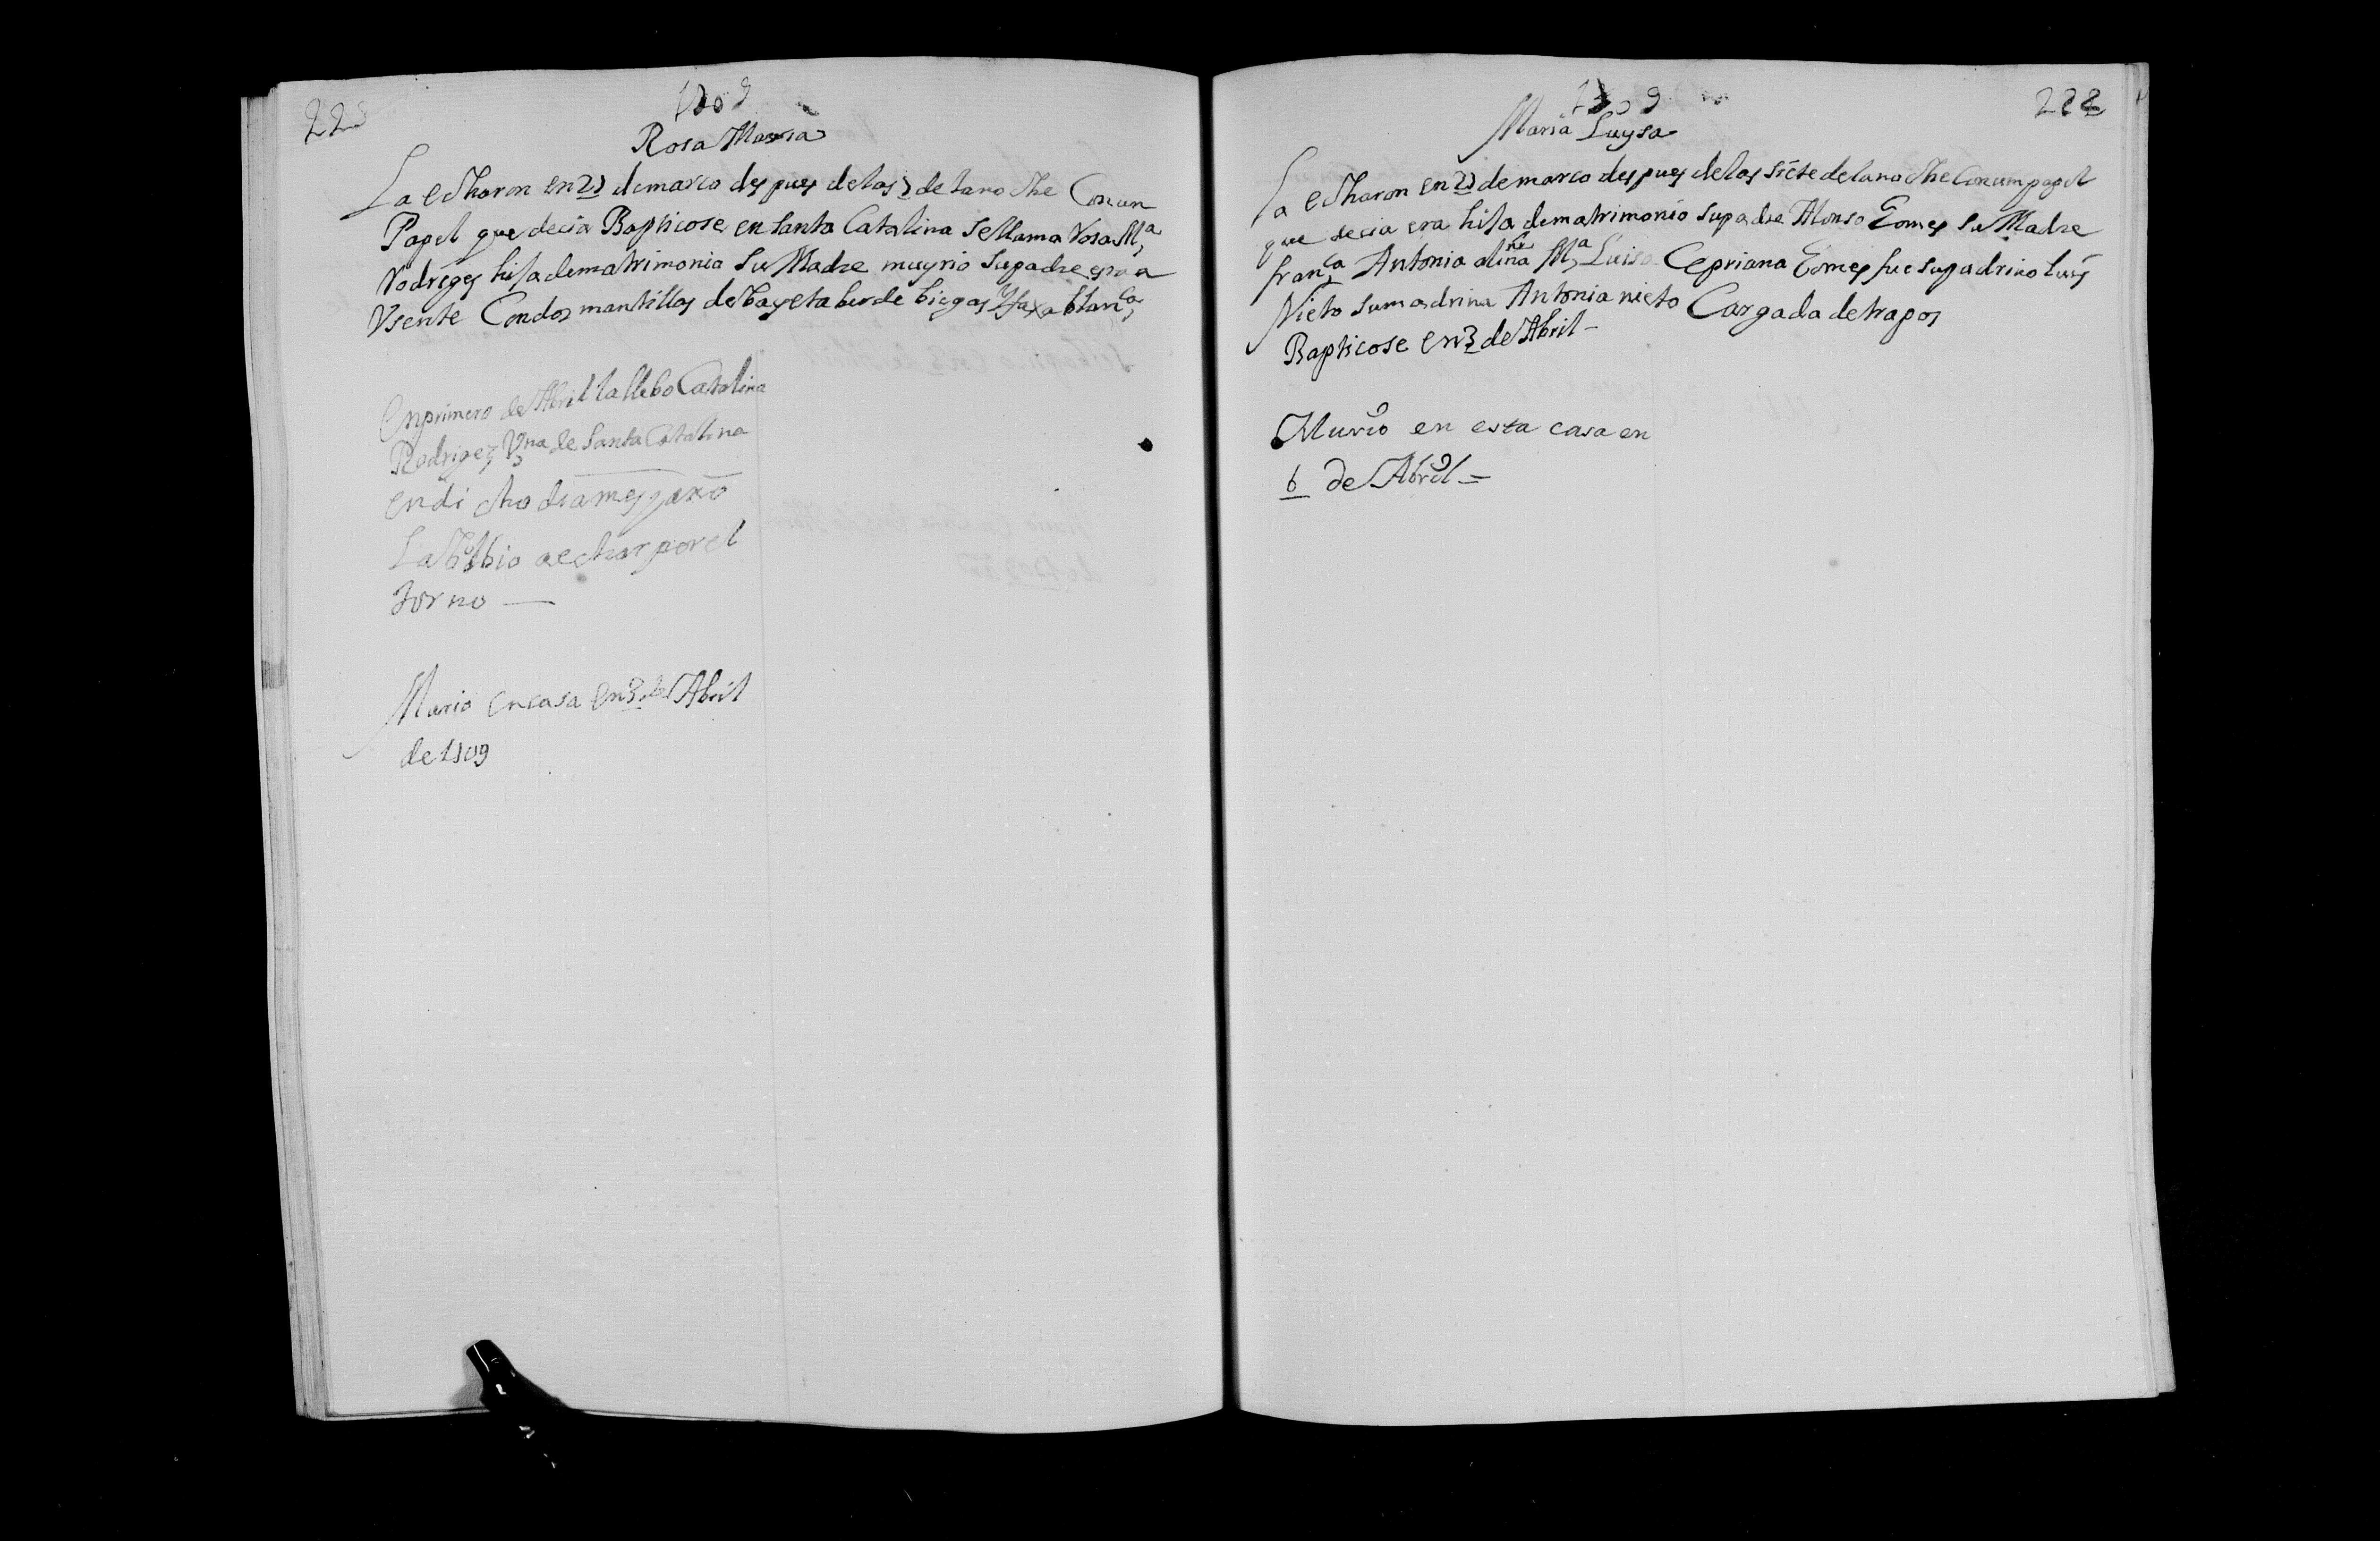 223
1709
Rosa Maria
La eTharon en 27 de marco despues de las 7 de lano the Con un
Papel que decia Bapticose en santa Catalina se llama Rosa Ma
Rodriges hisa de matrimonio Su Madre muyrio Su padre esta a
Usente Con dos mantillas de bayeta berde biegas Y faxa blanca
En primero de Abril la llebo Catalina
Rodrigez Vna de Santa Catalina
en di cho dia mes y año
La bolbio a echar por el
torno —
Murio en casa en 3 de Abril
de 1709
1709
222
Maria Luysa
La eTharon en 27 de marco despues de las siete de la no che Con um papel
que decia era hisa de matrimonio Su padre Alonso Gomes Su Madre
fran.ca Antonia niña Ma Luisa Cepriana Gomes fue su padrino luis
Nieto Su madrina Antonia nieto Cargada de trapos
Bapticose en 3 de Abril –
Murio en esta casa en
6 de Abril =